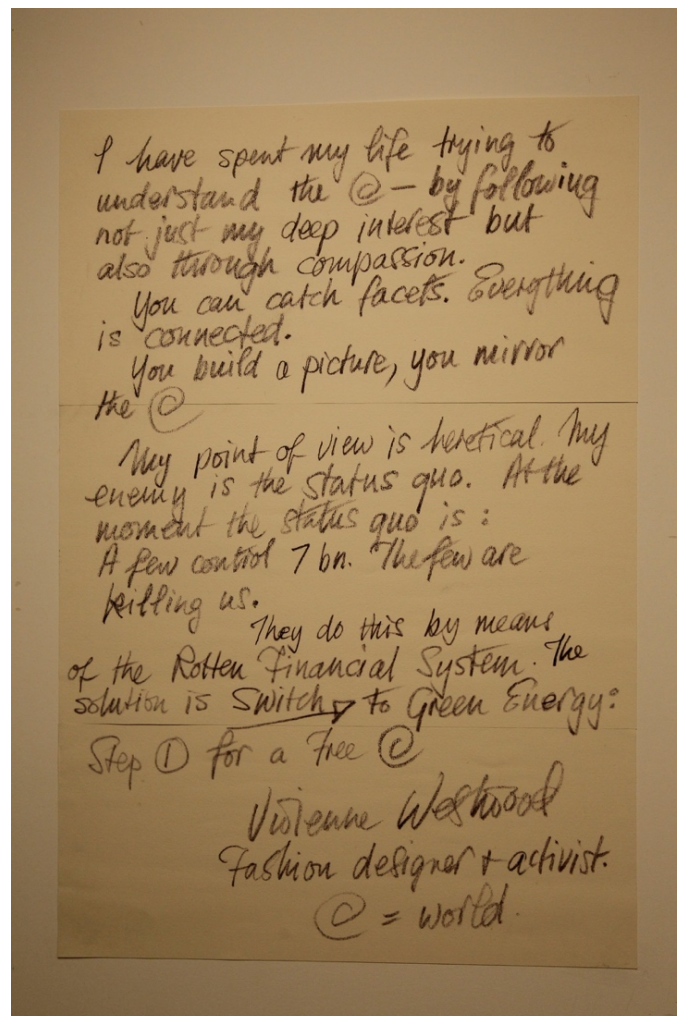 I have spent my life trying to
understand the @ — by following
not just my deep interest but
also through compassion.
You can catch facets. Everything
is connected.
You build a picture, you mirror
the @
My point of view is heretical. My
enemy is the status quo. At the
moment the status quo is :
A few control 7 bn. The few are
killing us.
They do this by means
of the Rotten Financial System. The
solution is Switch to Green Energy:
Step ① for a Free @
Vivienne Westwood
Fashion designer + activist.
@ = world.